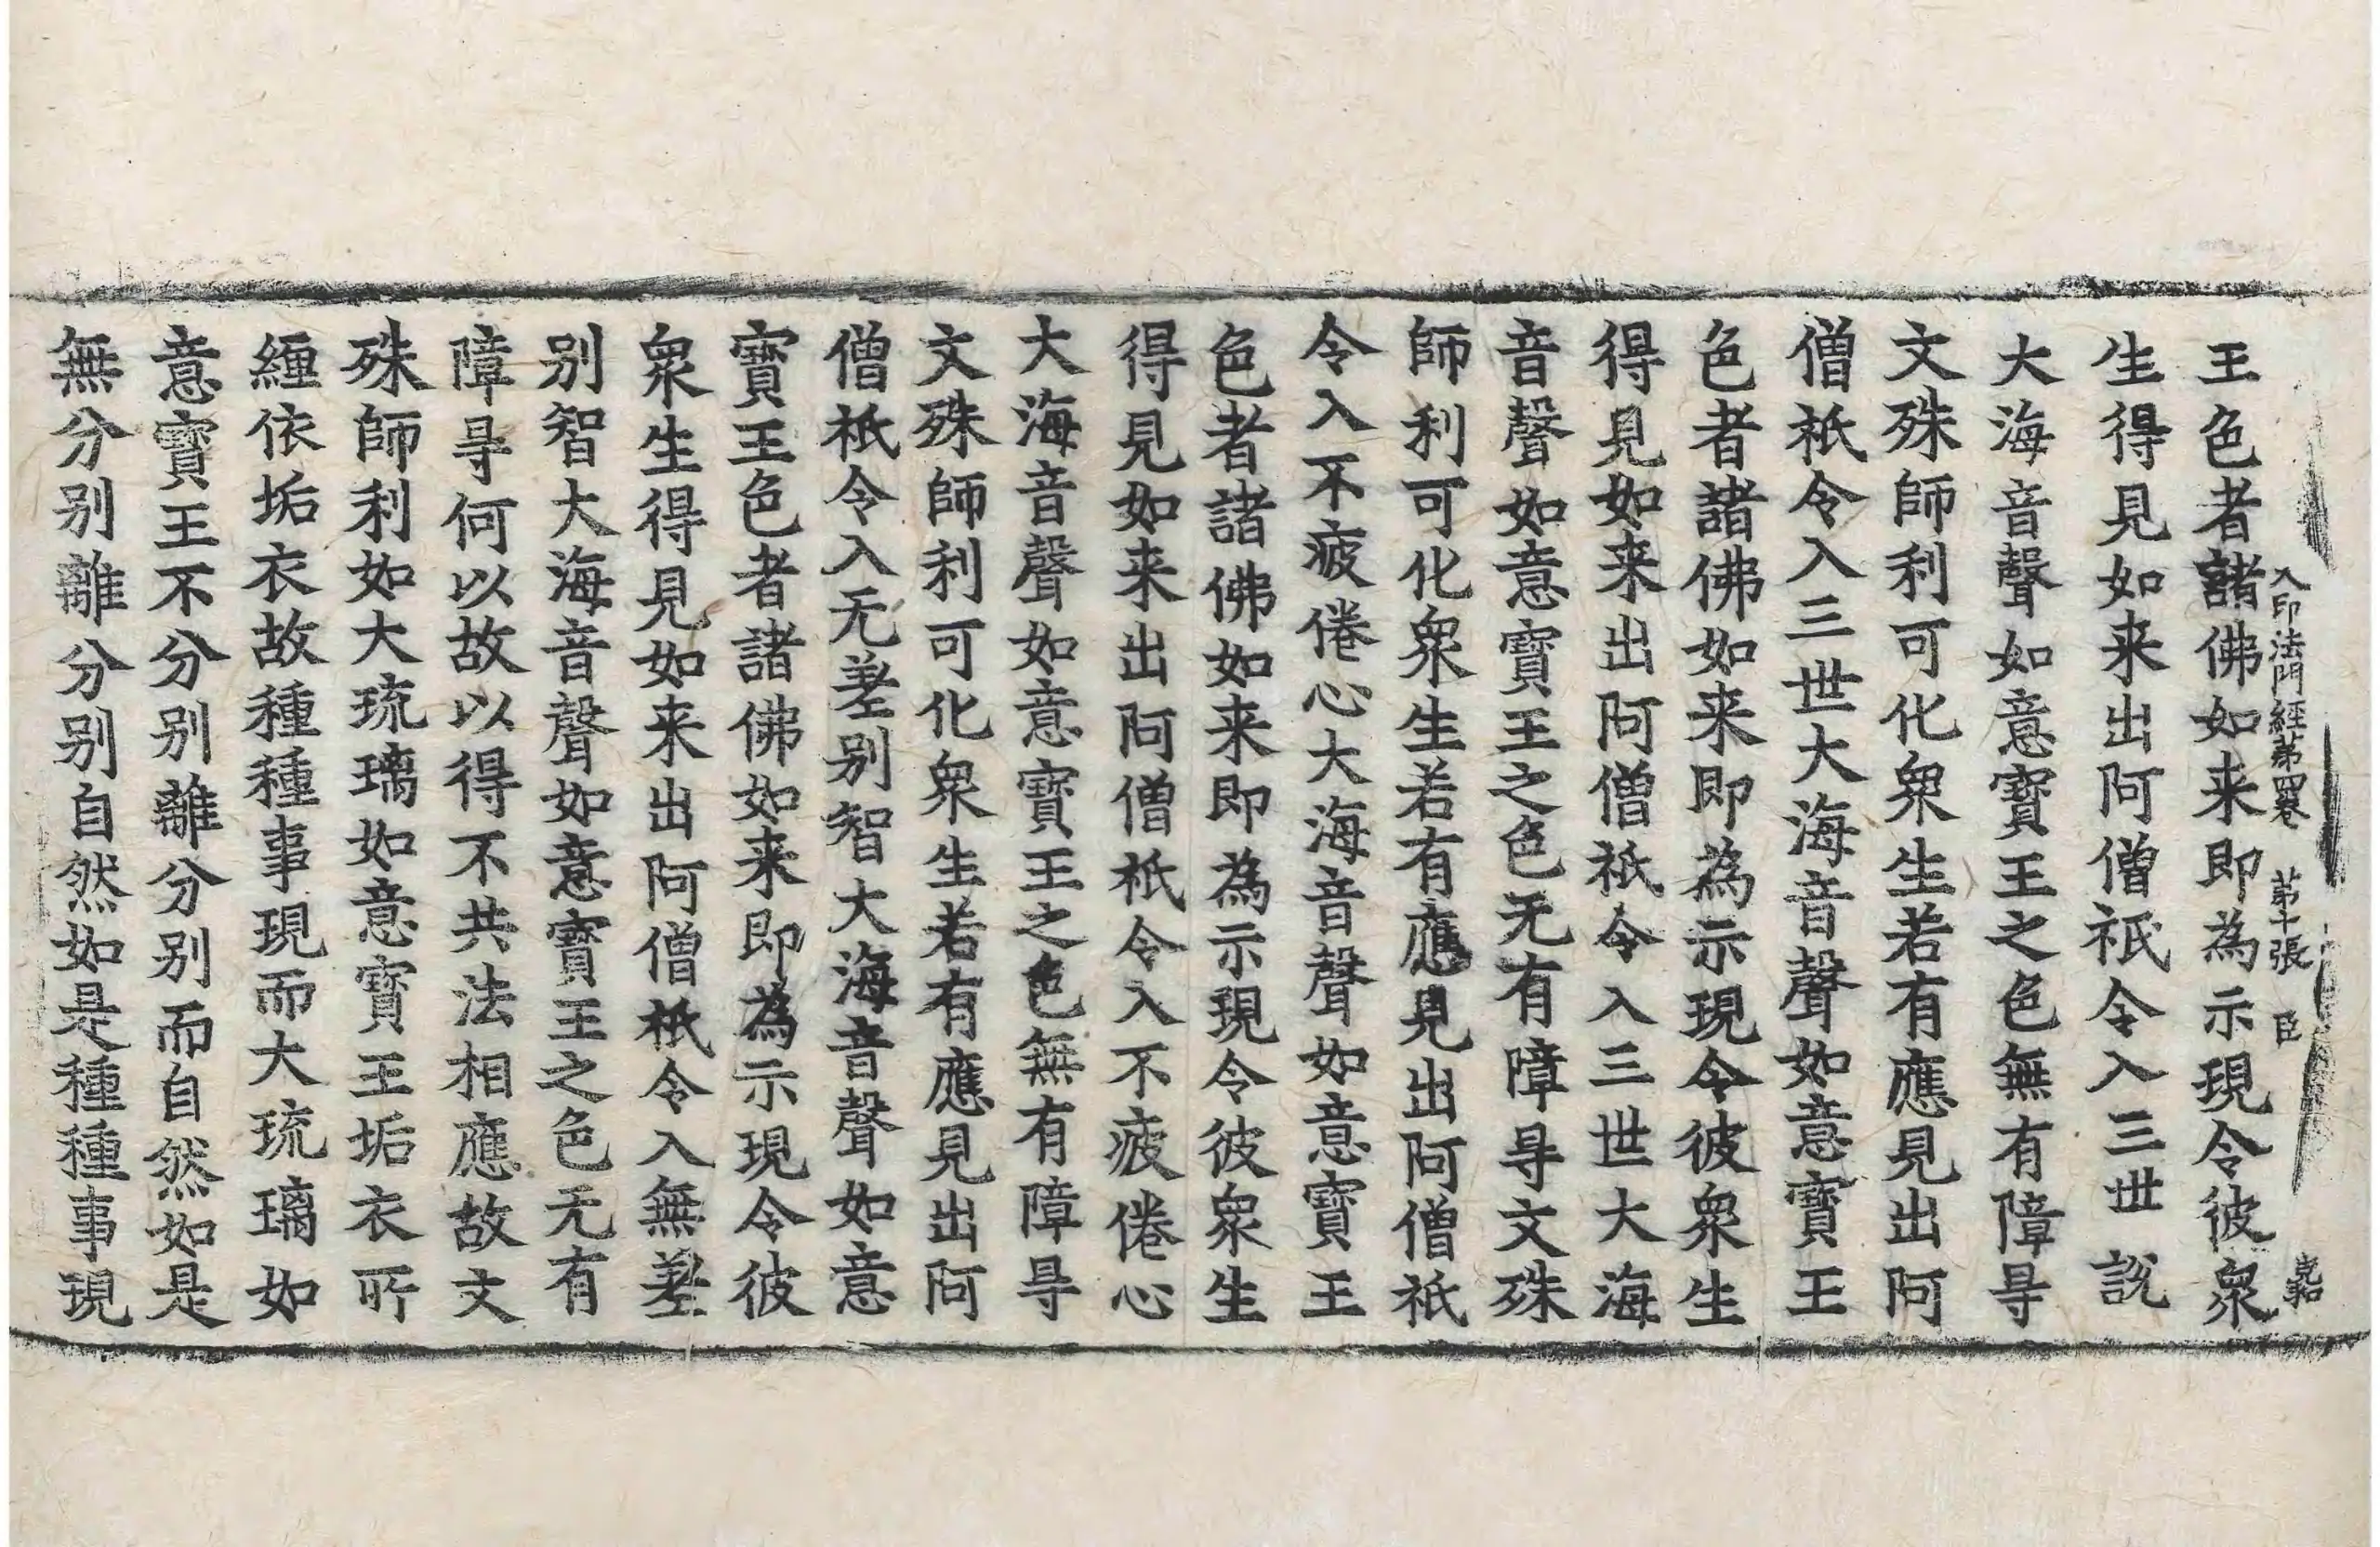 入印法門經第四卷 第十張 臣
王色者諸佛如来即為示現令彼衆
生得見如来出阿僧祇令入三世說
大海音聲如意寶王之色無有障㝵
文殊師利可化衆生若有應見出阿
僧祇令入三世大海音聲如意寶王
色者諸佛如来即為示現令彼衆生
得見如来出阿僧祇令入三世大海
音聲如意寶王之色无有障㝵文殊
師利可化衆生若有應見出阿僧祇
令入不疲倦心大海音聲如意寶王
色者諸佛如来即為示現令彼衆生
得見如来出阿僧祇令入不疲倦心
大海音聲如意寶王之色無有障㝵
文殊師利可化衆生若有應見出阿
僧祇令入无差别智大海音聲如意
寶王色者諸佛如来即為示現令彼
衆生得見如来出阿僧祇令入無差
别智大海音聲如意寶王之色无有
障㝵何以故以得不共法相應故文
殊師利如大琉璃如意寶王垢衣所
緾依垢衣故種種事現而大琉璃如
意寶王不分别離分别而自然如是
無分别離分别自然如是種種事現